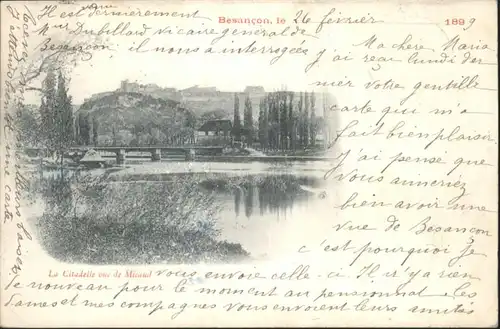 Besançon, le 26 février 1899
Ma chère Maria
j'ai reçu lundi der
nier votre gentille
carte qui m'a
fait bien plaisir.
J'ai pensé que
vous aimeriez
bien avoir une
vue de Besançon
c'est pourquoi je
vous envoie celle-ci. Il n'y a rien
de nouveau pour le moment au pensionnat. les
dames et mes compagnes vous envoient leurs amitiés
La Citadelle vue de Micaud
Il est venu dernièrement
Mr Dubillard vicaire général de
Besançon il nous a interrogées